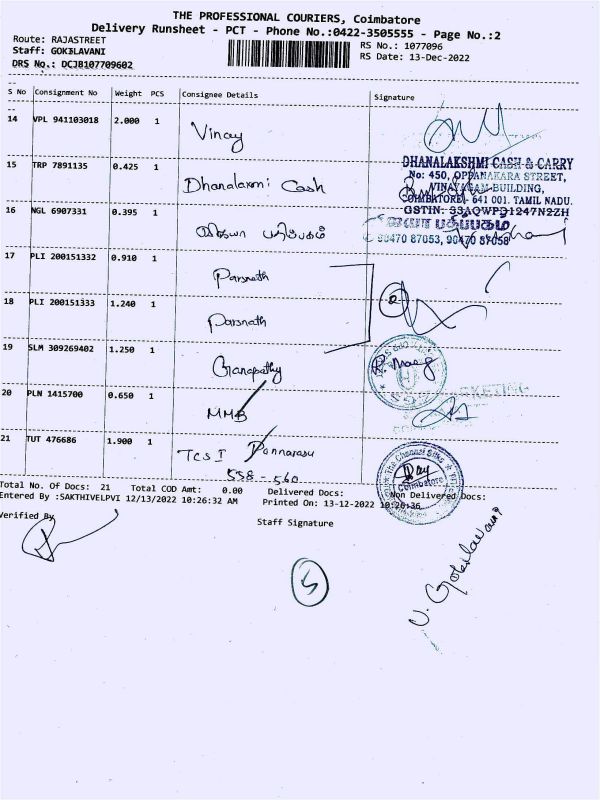 THE PROFESSIONAL COURIERS, Coimbatore
Delivery Runsheet - PCT - Phone No.:0422-3505555 - Page No.:2
Route: RAJASTREET
RS No.: 1077096
Staff: GOKILAVANI
RS Date: 13-Dec-2022
DRS No.: DCJB107709602
S No Consignment No Weight PCS Consignee Details Signature
14 VPL 941103018 2.000 1 Vinay
15 TRP 7891135 0.425 1 Dhanalaxmi Cash
DHANALAKSHMI CASH & CARRY
No: 450, OPPANAKARA STREET,
VINAYAGAM BUILDING,
COIMBATORE - 641 001. TAMIL NADU.
GSTIN: 33AQWPD1247N2ZH
16 NGL 6907331 0.395 1 விஜயா பதிப்பகம்
விஜயா பதிப்பகம்
90470 87053, 90470 87058
17 PLI 200151332 0.910 1 Parsnath
18 PLI 200151333 1.240 1 Parsnath
2
19 SLM 309269402 1.250 1 Ganapathy
20 PLN 1415700 0.650 1 MMB
MARKETING
21 TUT 476686 1.900 1 TCS I Ponnarasu
558 - 560
The Chennai Silks
Coimbatore
Total No. Of Docs: 21 Total COD Amt: 0.00 Delivered Docs: Non Delivered Docs:
Entered By :SAKTHIVELPVI 12/13/2022 10:26:32 AM Printed On: 13-12-2022 10:26:36
Verified By
Staff Signature
5
V. Gokilavani